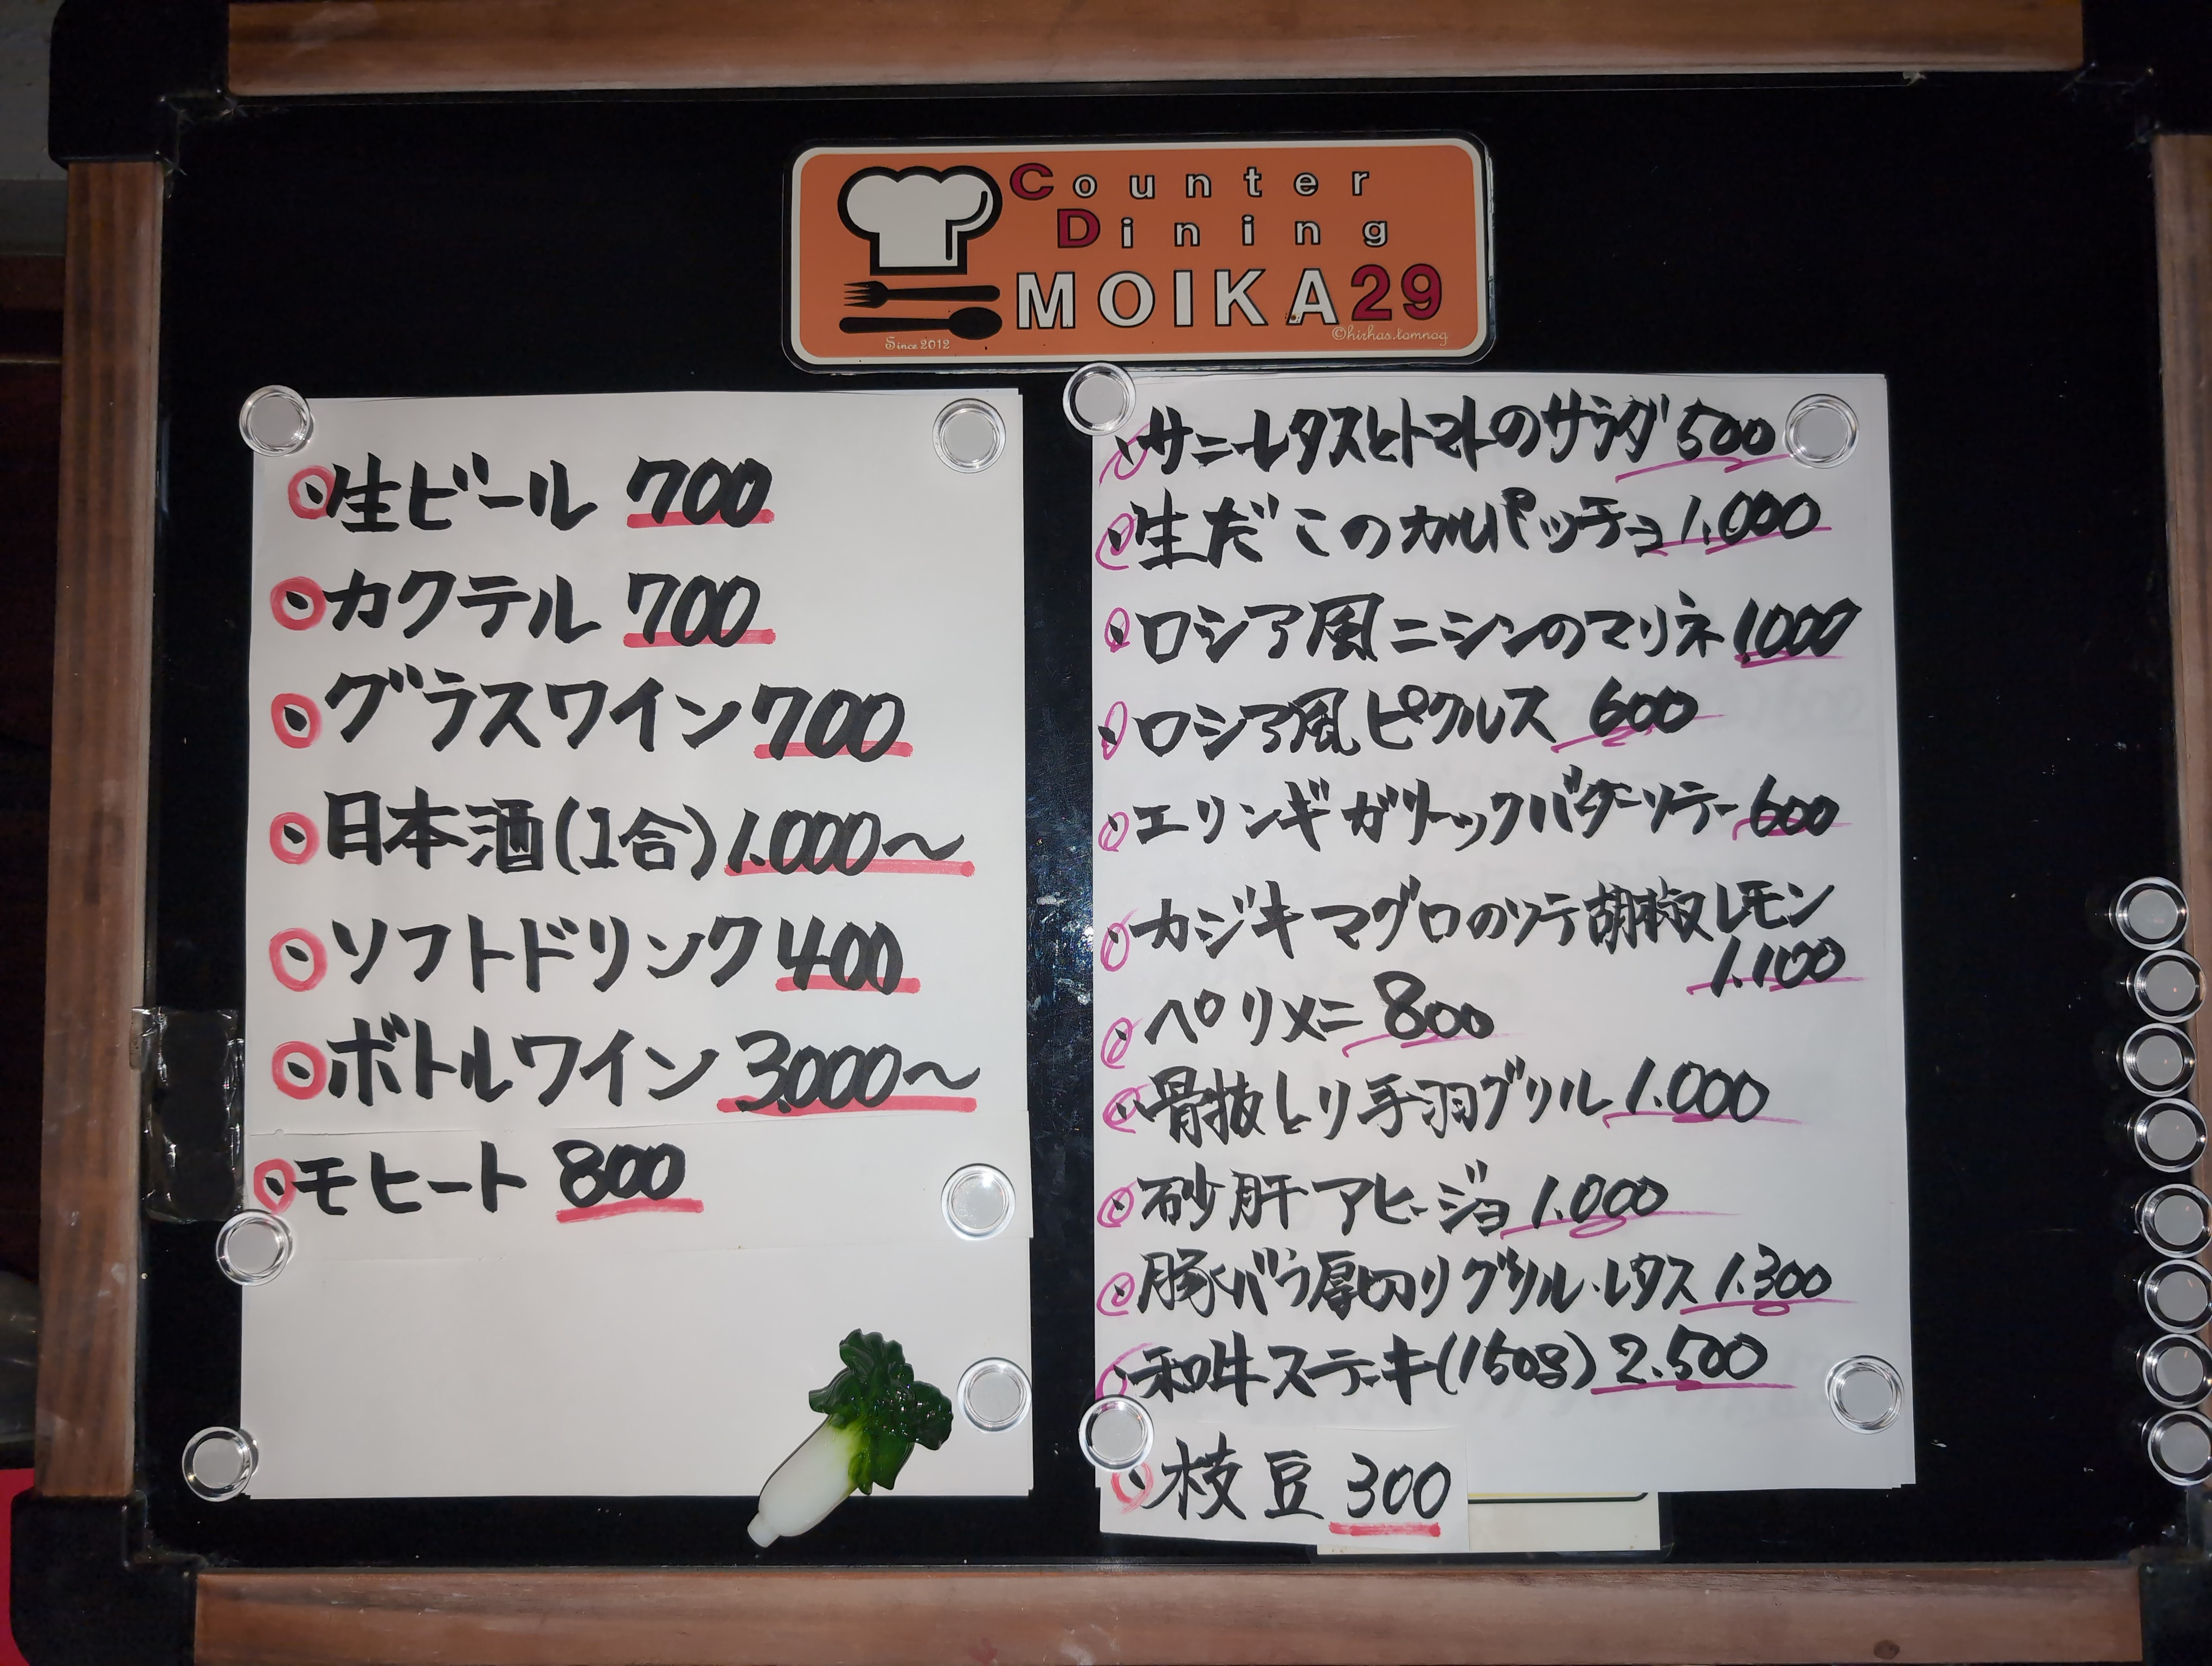 Counter
Dining
MOIKA29
Since 2012
©hirhas.tomnag
生ビール 700
カクテル 700
グラスワイン 700
日本酒(1合) 1.000〜
ソフトドリンク 400
ボトルワイン 3.000〜
モヒート 800
サニーレタスとトマトのサラダ 500
生だこのカルパッチョ 1.000
ロシア風ニシンのマリネ 1.000
ロシア風ピクルス 600
エリンギガーリックバターソテー 600
カジキマグロのソテー胡椒レモン
1.100
ペリメニ 800
骨抜とり手羽グリル 1.000
砂肝アヒージョ 1.000
豚バラ厚切りグリル・レタス 1.300
和牛ステーキ(150g) 2.500
枝豆 300